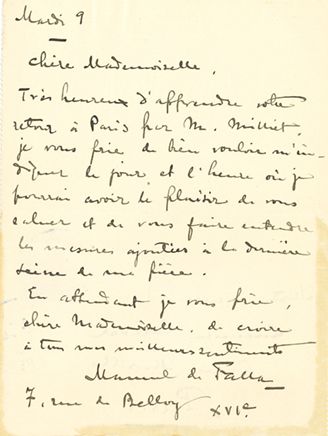 Mardi 9
Chère Mademoiselle,
Très heureux d'apprendre votre
retour à Paris par M. Milliet,
je vous prie de bien vouloir m'in-
diquer le jour et l'heure où je
pourrais avoir le plaisir de vous
saluer et de vous faire entendre
les mesures ajoutées à la dernière
scène de ma pièce.
En attendant je vous prie,
chère Mademoiselle, de croire
à tous mes meilleurs sentiments
Manuel de Falla
7, rue de Belloy
XVIe